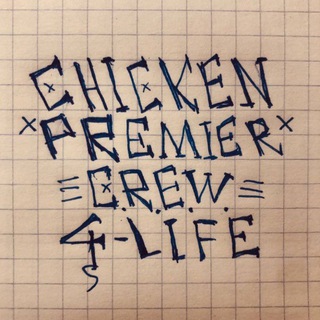 CHICKEN
×PREMIER×
≡C.R.E.W.≡
4-LIFE
S